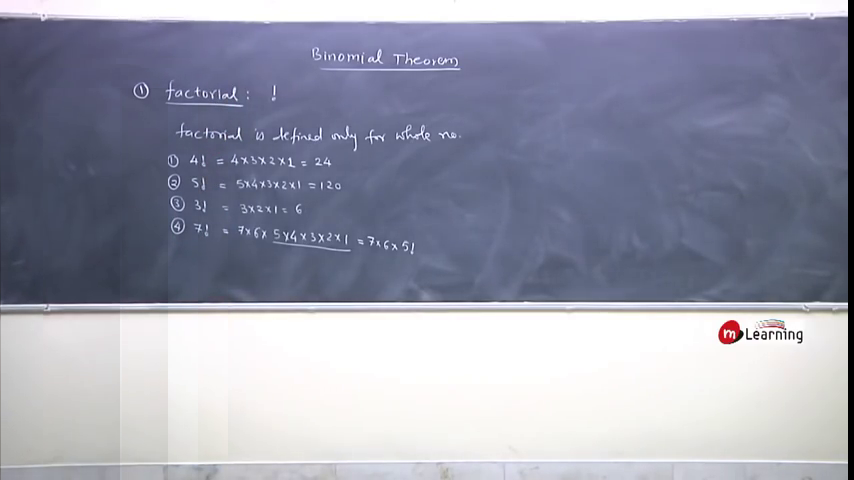 Binomial Theorem
① factorial : !
factorial is defined only for whole no.
① 4! = 4×3×2×1 = 24
② 5! = 5×4×3×2×1 = 120
③ 3! = 3×2×1 = 6
④ 7! = 7×6×5×4×3×2×1 = 7×6×5!
m Learning